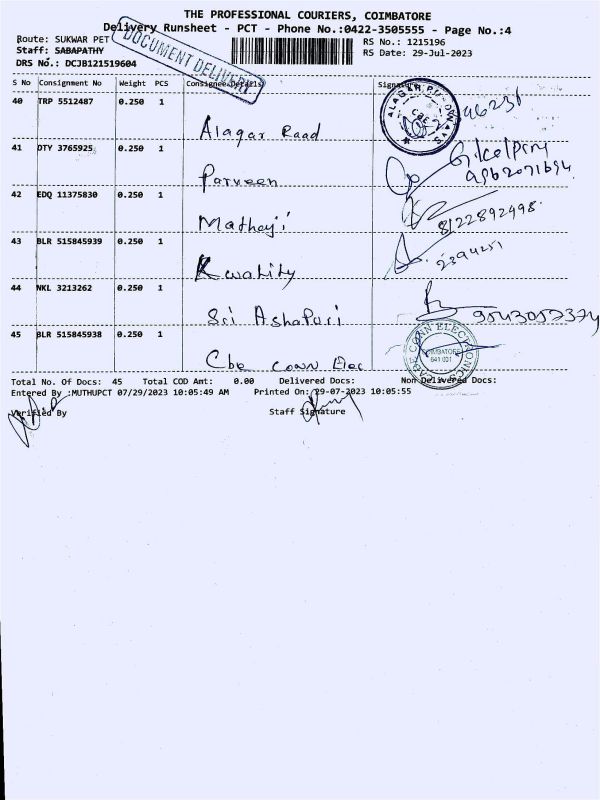 THE PROFESSIONAL COURIERS, COIMBATORE
Delivery Runsheet - PCT - Phone No.:0422-3505555 - Page No.:4
Route: SUKWAR PET
RS No.: 1215196
Staff: SABAPATHY
RS Date: 29-Jul-2023
DRS No.: DCJB121519604
DOCUMENT DELIVERY
S No Consignment No Weight PCS Consignee Details Signature
40 TRP 5512487 0.250 1
Alagar Raad
41 DTY 3765925 0.250 1
Parveen
9962071694
42 EDQ 11375830 0.250 1
Mathaji
8122892498
43 BLR 515845939 0.250 1
Kwality
44 NKL 3213262 0.250 1
Sri Ashapuri
9543052374
45 BLR 515845938 0.250 1
Cbe Conn Elec
COIMBATORE
641 001
Total No. Of Docs: 45 Total COD Amt: 0.00 Delivered Docs: Non Delivered Docs:
Entered By :MUTHUPCT 07/29/2023 10:05:49 AM Printed On: 29-07-2023 10:05:55
Verified By Staff Signature